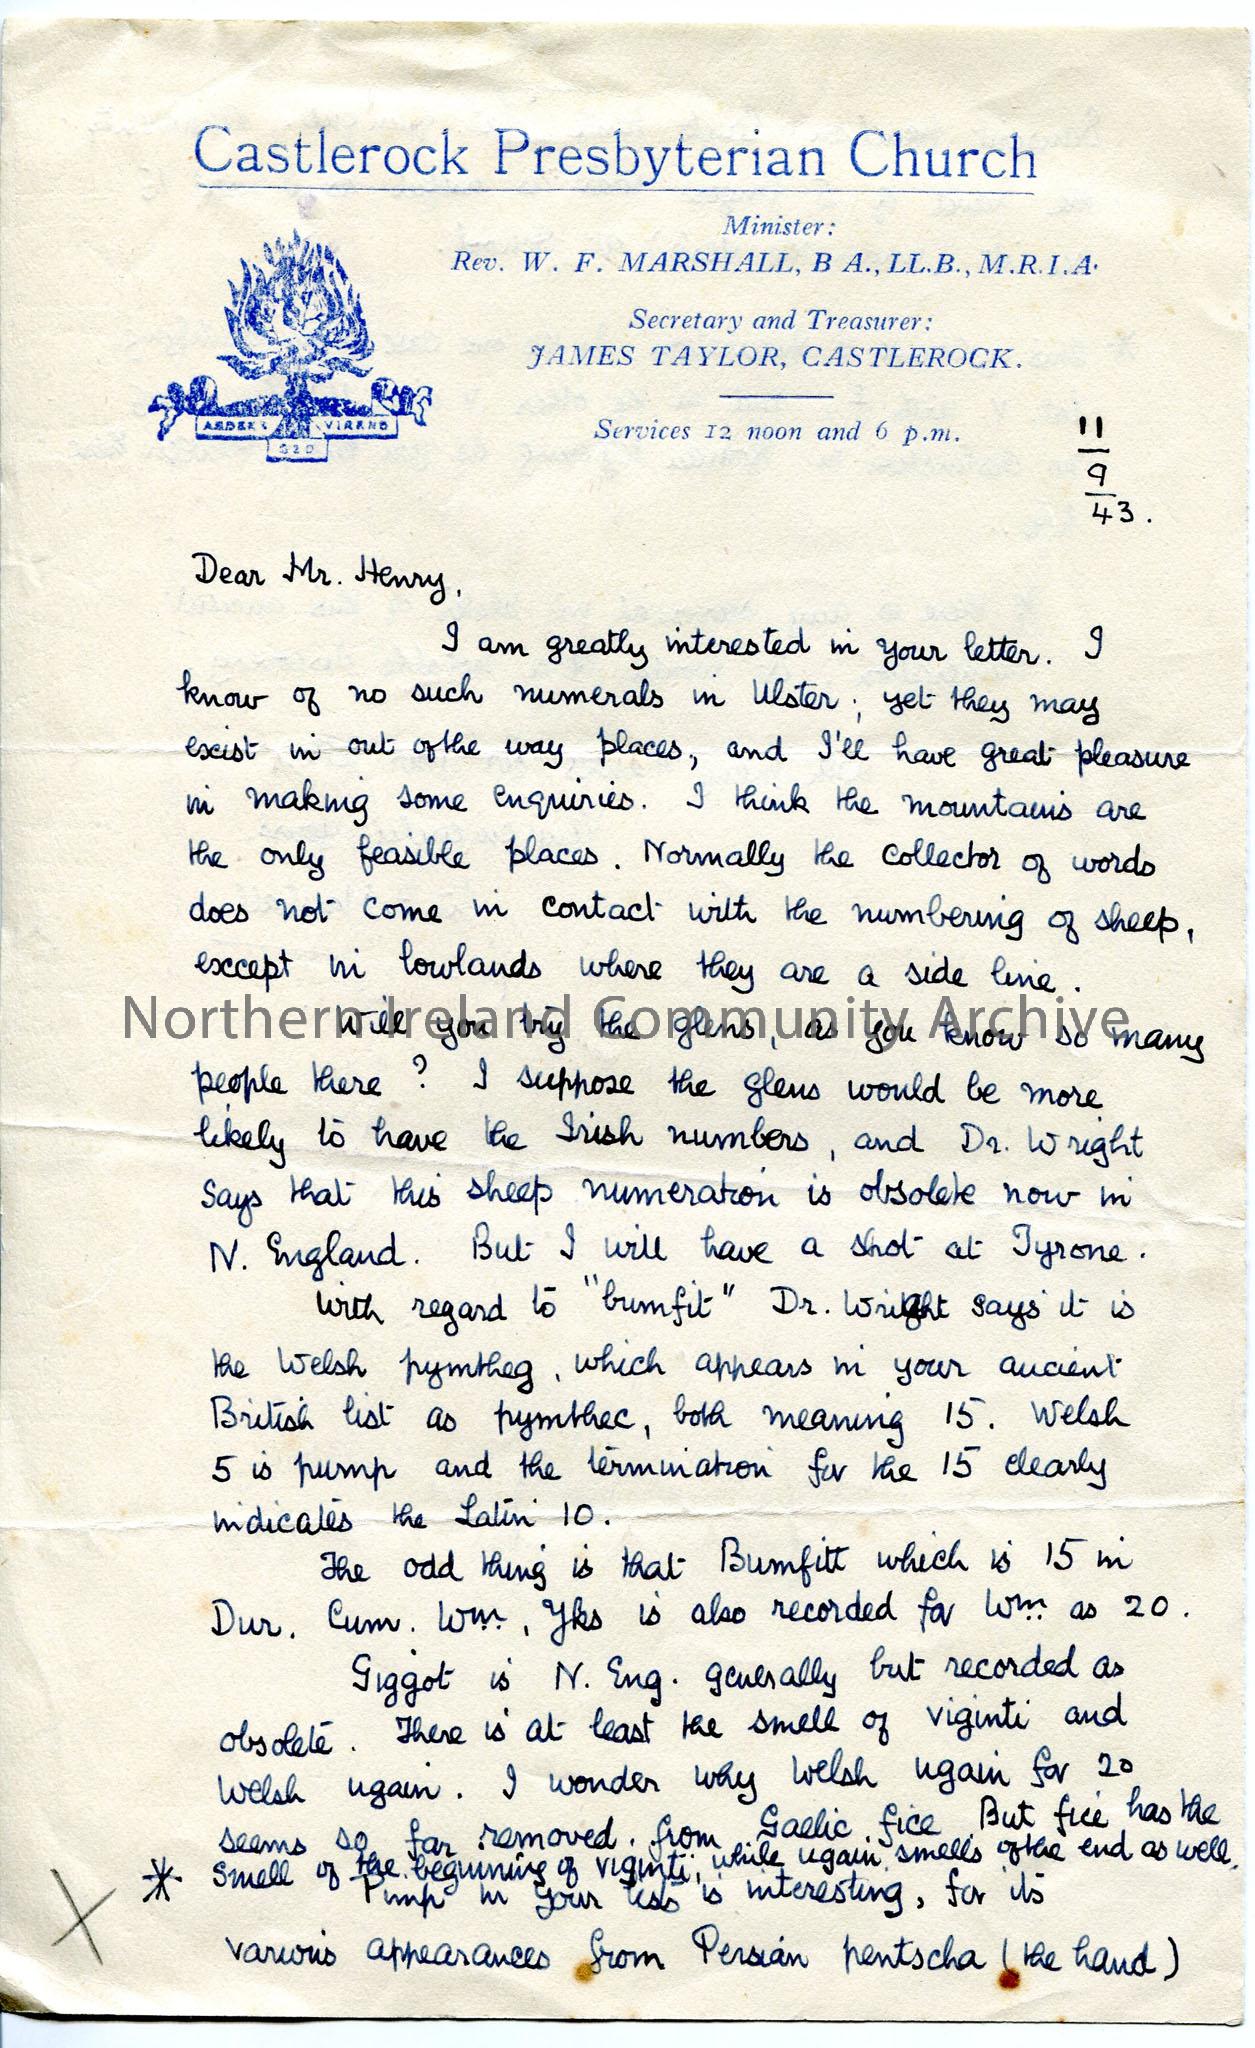 Castlerock Presbyterian Church
Minister:
Rev. W. F. MARSHALL, B A., LL.B., M.R.I.A.
Secretary and Treasurer:
JAMES TAYLOR, CASTLEROCK.
Services 12 noon and 6 p.m.
ARDENS VIRENS
11
9
43.
Dear Mr. Henry,
I am greatly interested in your letter. I
know of no such numerals in Ulster; yet they may
exist in out of the way places, and I'll have great pleasure
in making some enquiries. I think the mountains are
the only feasible places. Normally the collector of words
does not come in contact with the numbering of sheep,
except in lowlands where they are a side line.
Northern Ireland Community Archive
Will you try the Glens, as you know so many
people there? I suppose the Glens would be more
likely to have the Irish numbers, and Dr. Wright
says that this sheep numeration is obsolete now in
N. England. But I will have a shot at Tyrone.
With regard to "bumfit" Dr. Wright says it is
the Welsh pymtheg, which appears in your ancient
British list as pymthec, both meaning 15. Welsh
5 is pump and the termination for the 15 clearly
indicates the Latin 10.
The odd thing is that Bumfitt which is 15 in
Dur. Cum. Wm., Yks is also recorded for Wm. as 20.
Giggot is N. Eng. generally but recorded as
obsolete. There is at least the smell of viginti and
Welsh ugain. I wonder why Welsh ugain for 20
seems so far removed from Gaelic fice But fice has the
* smell of the beginning of viginti, while ugain smells of the end as well.
Pimp in your lists is interesting, for its
various appearances from Persian pentscha (the hand)